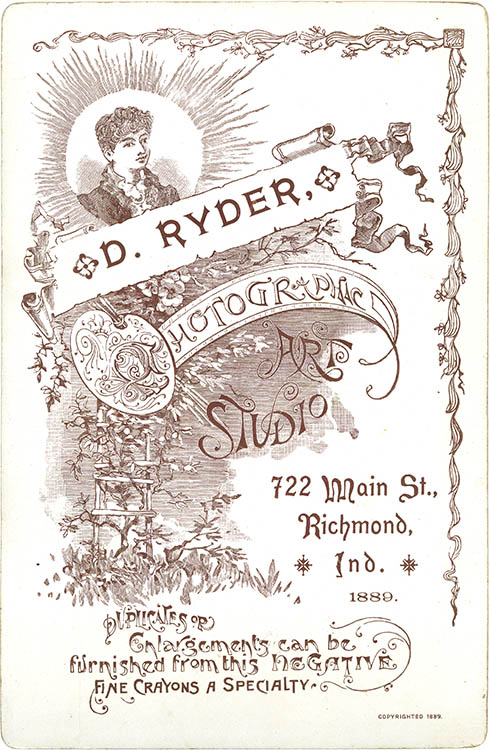 D. RYDER,
PHOTOGRAPHIC
ART
STUDIO
722 Main St.,
Richmond,
Ind.
1889.
DUPLICATES OR
Enlargements can be
furnished from this NEGATIVE
FINE CRAYONS A SPECIALTY.
COPYRIGHTED 1889.